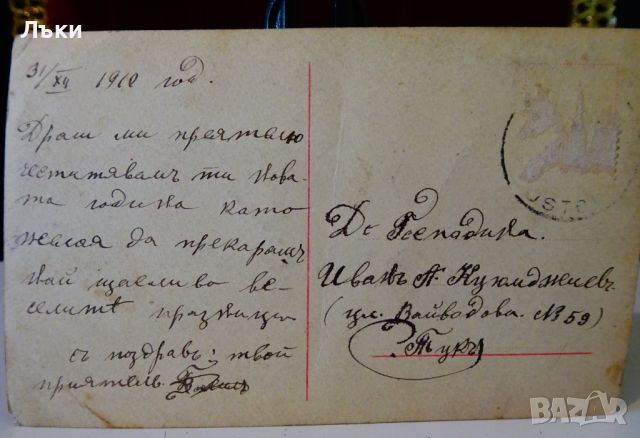 Лъки
31/XII 1918 год.
Драги ми приятелю
честитявамъ ти нова-
та година като
желая да прекарашъ
най щасливо ве-
селитѣ празници
съ поздравъ: твой
приятель
До Господина.
Иванъ А. Куюмджиевъ
(ул. Вайводова. № 59)
Тукъ
BAZAR